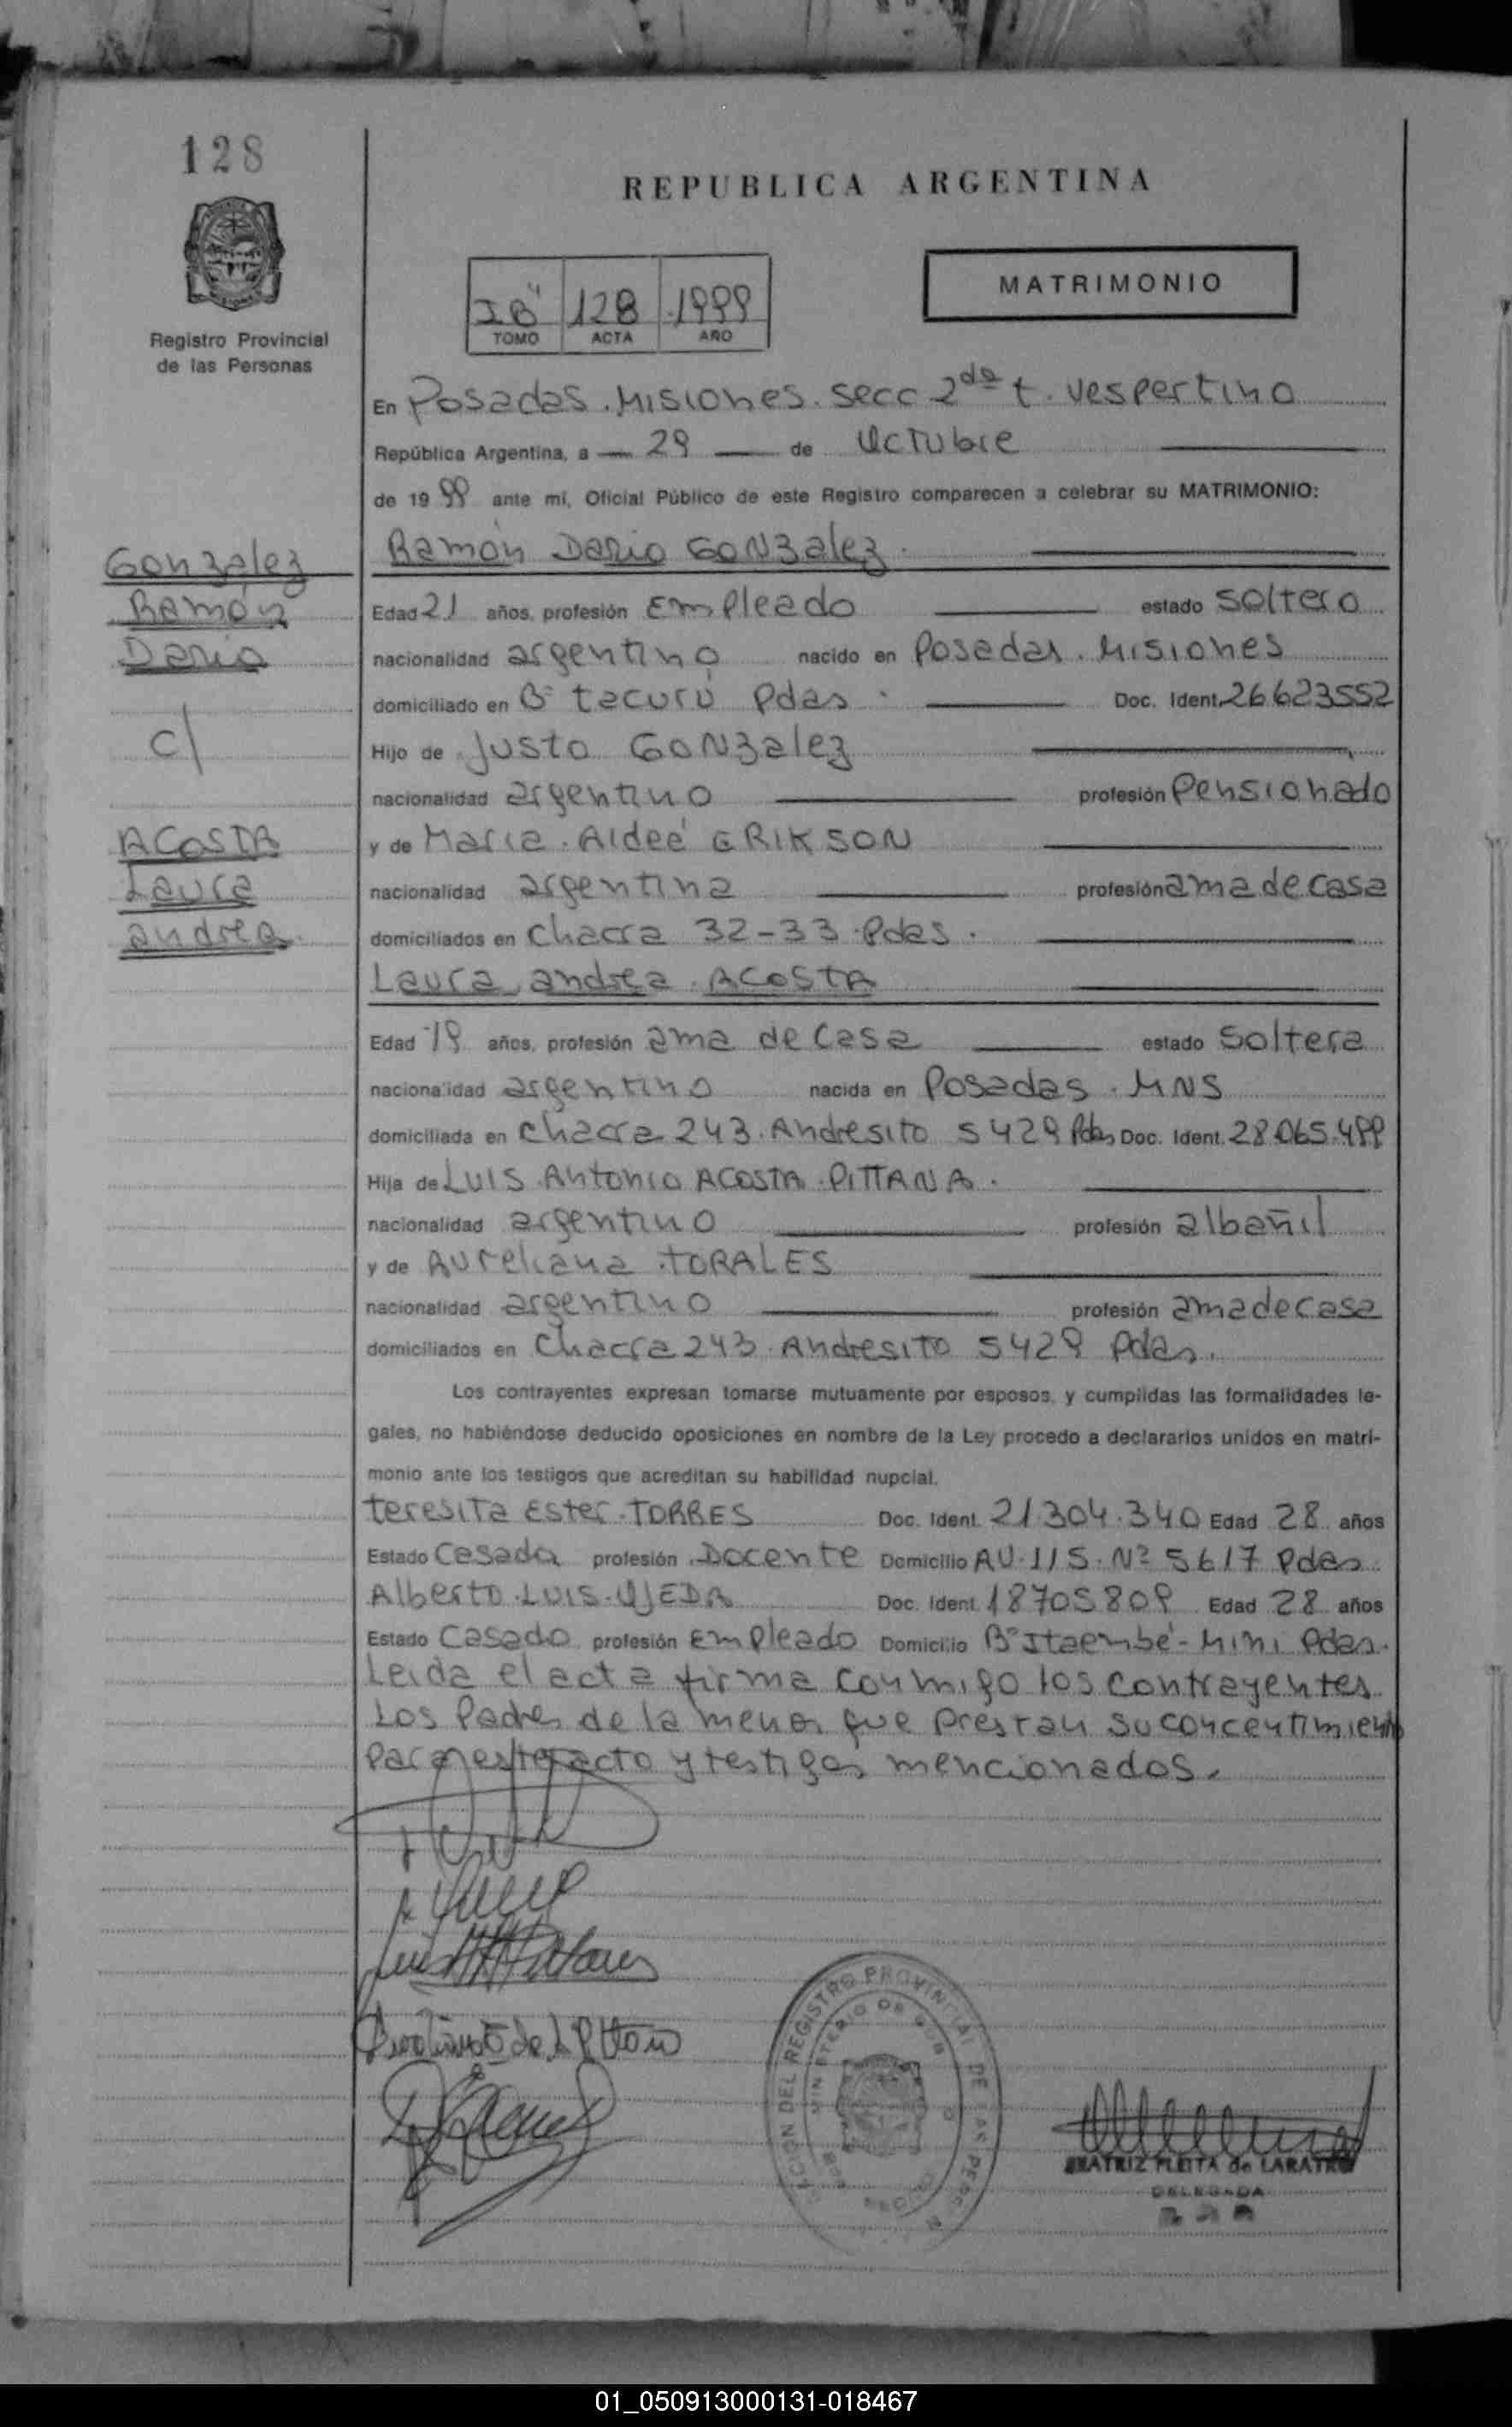 128
REPUBLICA ARGENTINA
MATRIMONIO
IB" 128 1999
TOMO ACTA AÑO
Registro Provincial
de las Personas
En Posadas. Misiones. secc 2da t. vespertino
República Argentina, a 29 de Octubre
de 1999 ante mí, Oficial Público de este Registro comparecen a celebrar su MATRIMONIO:
Gonzalez
Ramón
Dario
c/
ACOSTA
Laura
andrea
Ramón Dario GONzalez.
Edad 21 años, profesión Empleado estado soltero
nacionalidad argentino nacido en Posadas. Misiones
domiciliado en Bº tacurú Pdas. Doc. Ident. 26623552
Hijo de Justo GONzalez
nacionalidad argentino profesión Pensionado
y de Maria. Aideé ERIKSON
nacionalidad argentina profesión ama de casa
domiciliados en Chacra 32-33 Pdas.
Laura andrea. ACOSTA
Edad 19 años, profesión ama de casa estado Soltera
nacionalidad argentino nacida en Posadas. MNS
domiciliada en chacra 243. Andresito S 429 Pdas Doc. Ident. 28.065.499
Hija de LUIS Antonio ACOSTA PITTANA.
nacionalidad argentino profesión albañil
y de Aureliana TORALES
nacionalidad argentino profesión ama de casa
domiciliados en Chacra 243. Andresito S 429 Pdas.
Los contrayentes expresan tomarse mutuamente por esposos, y cumplidas las formalidades le-
gales, no habiéndose deducido oposiciones en nombre de la Ley procedo a declararlos unidos en matri-
monio ante los testigos que acreditan su habilidad nupcial.
teresita Ester. TORRES Doc. Ident. 21.304.340 Edad 28 años
Estado Casada profesión Docente Domicilio AV. 115. Nº 5617 Pdas
Alberto. LUIS. OJEDA Doc. Ident. 18705809 Edad 28 años
Estado Casado profesión Empleado Domicilio Bº Itaembé-Mini Pdas.
Leida el acta firma conmigo los contrayentes
Los Padres de la menor que prestan su concentimiento
para este acto y testigos mencionados.
REGISTRO PROVINCIAL DE LAS
BEATRIZ PLEITA de LARATRO
DELEGADA
01_050913000131-018467